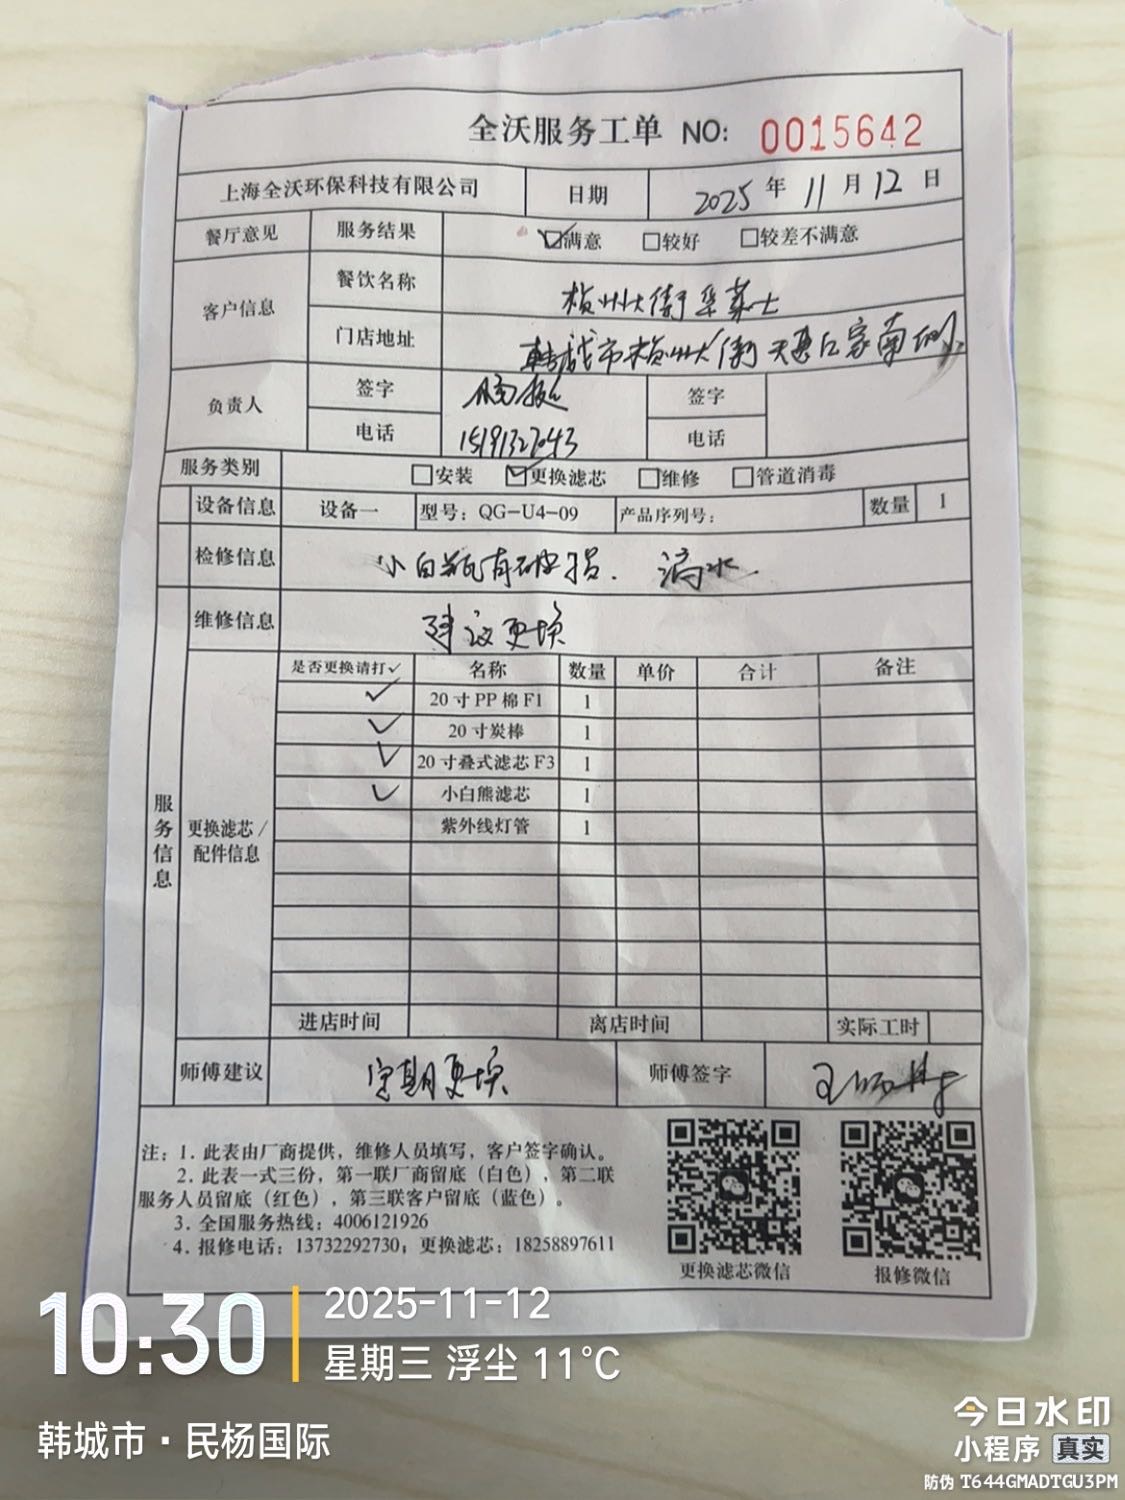 全沃服务工单 NO: 0015642
上海全沃环保科技有限公司 日期 2025年11月12日
餐厅意见 服务结果 ☑满意 □较好 □较差不满意
客户信息 餐饮名称 桢州大街华莱士
门店地址 韩城市桢州大街天惠仁家南侧
负责人 签字 签字
电话 15191327043 电话
服务类别 □安装 ☑更换滤芯 □维修 □管道消毒
设备信息 设备一 型号：QG-U4-09 产品序列号： 数量 1
检修信息 小白瓶有破损. 滴水.
维修信息 建议更换
是否更换请打✓ 名称 数量 单价 合计 备注
✓ 20寸PP棉F1 1
✓ 20寸炭棒 1
✓ 20寸叠式滤芯F3 1
✓ 小白熊滤芯 1
紫外线灯管 1
服务信息
更换滤芯/
配件信息
进店时间 离店时间 实际工时
师傅建议 定期更换 师傅签字
注：1. 此表由厂商提供，维修人员填写，客户签字确认。
2. 此表一式三份，第一联厂商留底（白色），第二联
服务人员留底（红色），第三联客户留底（蓝色）。
3. 全国服务热线：4006121926
4. 报修电话：13732292730；更换滤芯：18258897611
更换滤芯微信 报修微信
10:30 2025-11-12
星期三 浮尘 11°C
韩城市·民杨国际
今日水印
小程序 真实
防伪 T644GMADTGU3PM